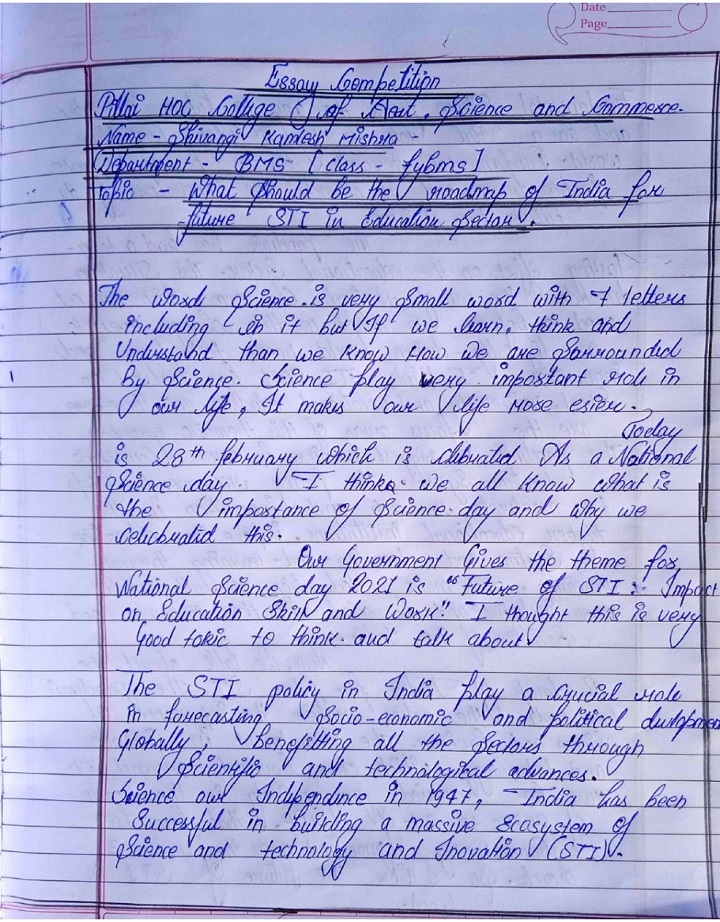 Date
Page
Essay Competition
Pillai HOC College of Art, Science and Commerce.
Name - Shivangi Kamlesh Mishra -
Department - BMS [class - fybms]
Topic - What Should be the roadmap of India for
future STI in Education Sector.
The word Science is very small word with 7 letters
including in it but If we learn, think and
Understand than we know How we are Sarrounded
By Science. Science play very important role in
our life, It makes our life more esier.
Today
is 28th february which is clibrated As a National
Science day. I think we all know what is
the importance of Science day and why we
celicbrated this.
Our Government Gives the theme for
National Science day 2021 is "Future of STI :- Impact
on Education Skill and Work". I thought this is very
Good tokic to think and talk about
The STI policy in India play a crucial role
in forecasting Socio-economic and political
Globally, benefitting all the Sectors through
Scientific and technological advances.
Science our Indepndnce in 1947, India has been
Successful in building a massive Ecosystem of
Science and technology and Inovation (STI).